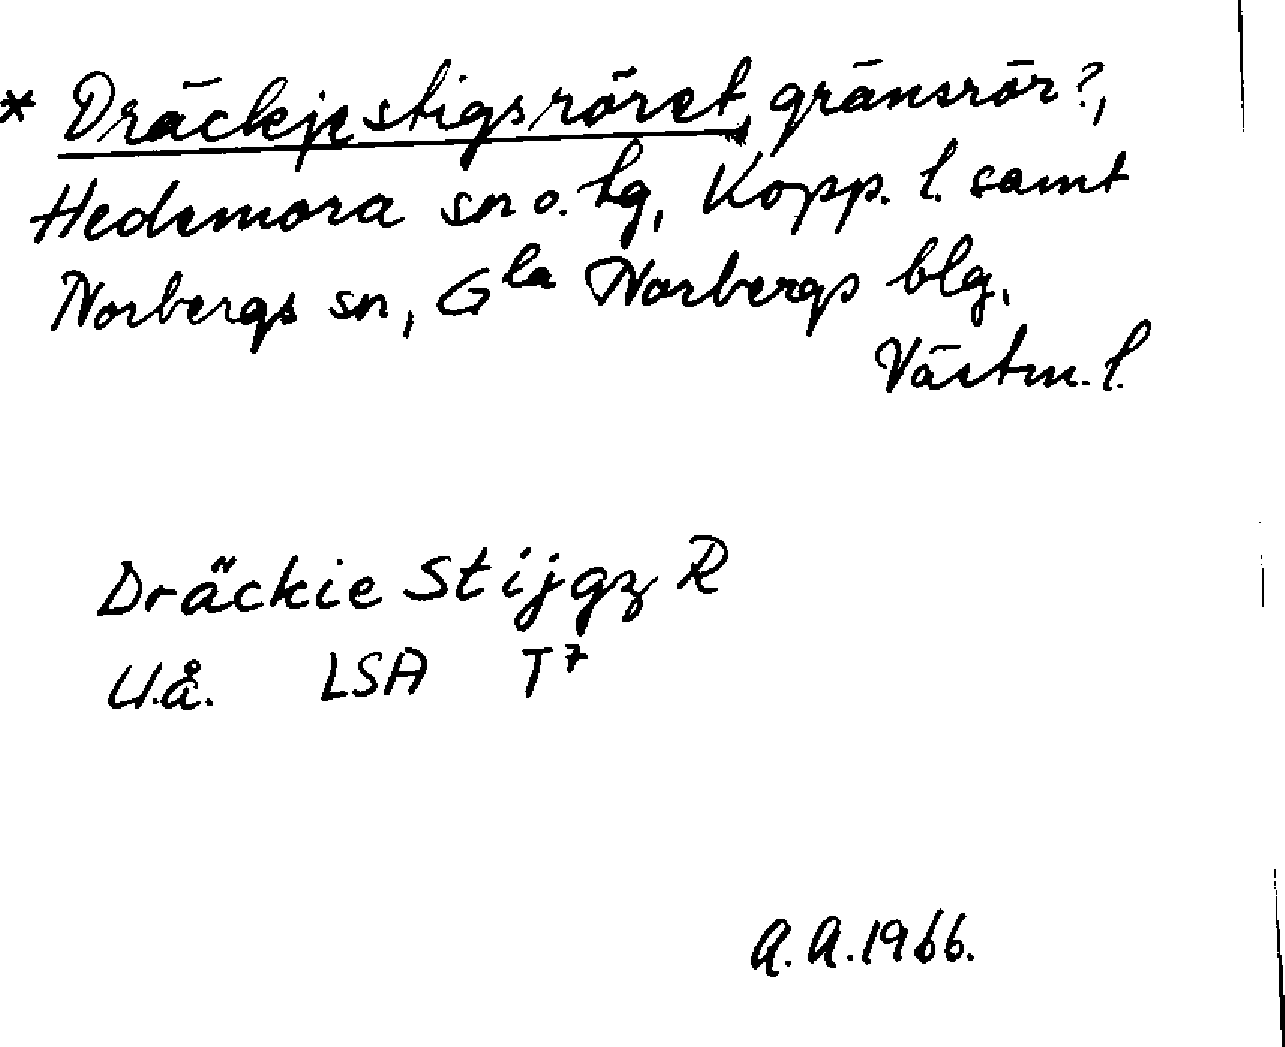 * Dräckjestigsröret, gränsrör?,
Hedemora sn o. tg, Kopp. l. samt
Norbergs sn, Gla Norbergs blg,
Västm. l.
Dräckie Stijgz R
U.å. LSA T7
A.A. 1966.